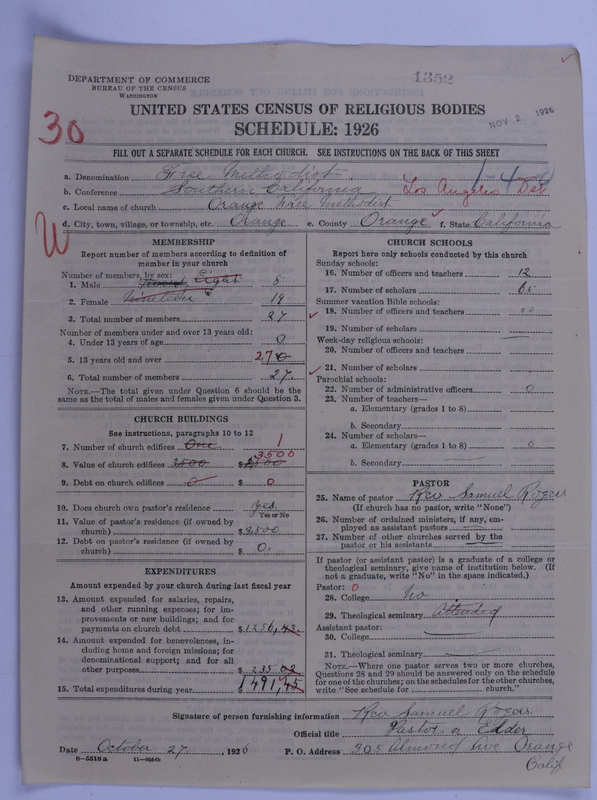 1352
DEPARTMENT OF COMMERCE
BUREAU OF THE CENSUS
WASHINGTON
NOV 2 1926
UNITED STATES CENSUS OF RELIGIOUS BODIES
30
SCHEDULE: 1926
FILL OUT A SEPARATE SCHEDULE FOR EACH CHURCH. SEE INSTRUCTIONS ON THE BACK OF THIS SHEET
a. Denomination Free Methodist
b. Conference Southern California Los Angeles Dst
c. Local name of church Orange Free Methodist
d. City, town, village, or township, etc. Orange e. County Orange f. State California
W
MEMBERSHIP
Report number of members according to definition of
member in your church
Number of members, by sex:
1. Male Eight 8
2. Female 19
3. Total number of members 27
Number of members under and over 13 years old:
4. Under 13 years of age 0
5. 13 years old and over 27 0
6. Total number of members 27.
NOTE.—The total given under Question 6 should be the
same as the total of males and females given under Question 3.
CHURCH BUILDINGS
See instructions, paragraphs 10 to 12
7. Number of church edifices One 1
3500
8. Value of church edifices 3500 $
9. Debt on church edifices 0 $ 0
10. Does church own pastor's residence yes.
Yes or No
11. Value of pastor's residence (if owned by
church) $3,500
12. Debt on pastor's residence (if owned by
church) $ 0.
EXPENDITURES
Amount expended by your church during last fiscal year
13. Amount expended for salaries, repairs,
and other running expenses; for im-
provements or new buildings; and for
payments on church debt $1256,43
14. Amount expended for benevolences, in-
cluding home and foreign missions; for
denominational support; and for all
other purposes $ 235 02
15. Total expenditures during year $1491,45
CHURCH SCHOOLS
Report here only schools conducted by this church
Sunday schools:
16. Number of officers and teachers 12
17. Number of scholars 65
Summer vacation Bible schools:
18. Number of officers and teachers
19. Number of scholars
Week-day religious schools:
20. Number of officers and teachers
21. Number of scholars
Parochial schools:
22. Number of administrative officers 0
23. Number of teachers—
a. Elementary (grades 1 to 8)
b. Secondary
24. Number of scholars—
a. Elementary (grades 1 to 8) 0
b. Secondary
PASTOR
25. Name of pastor Rev Samuel Rogers
(If church has no pastor, write "None")
26. Number of ordained ministers, if any, em-
ployed as assistant pastors
27. Number of other churches served by the
pastor or his assistants
If pastor (or assistant pastor) is a graduate of a college or
theological seminary, give name of institution below. (If
not a graduate, write "No" in the space indicated.)
Pastor: 0
28. College no
29. Theological seminary Attended
Assistant pastor:
30. College
31. Theological seminary
NOTE.—Where one pastor serves two or more churches,
Questions 28 and 29 should be answered only on the schedule
for one of the churches; on the schedules for the other churches,
write "See schedule for church."
Signature of person furnishing information Rev Samuel Rogers
Official title Pastor or Elder
Date October 27, 1926 P. O. Address 305 Almond Ave Orange
Calif
8—5518a